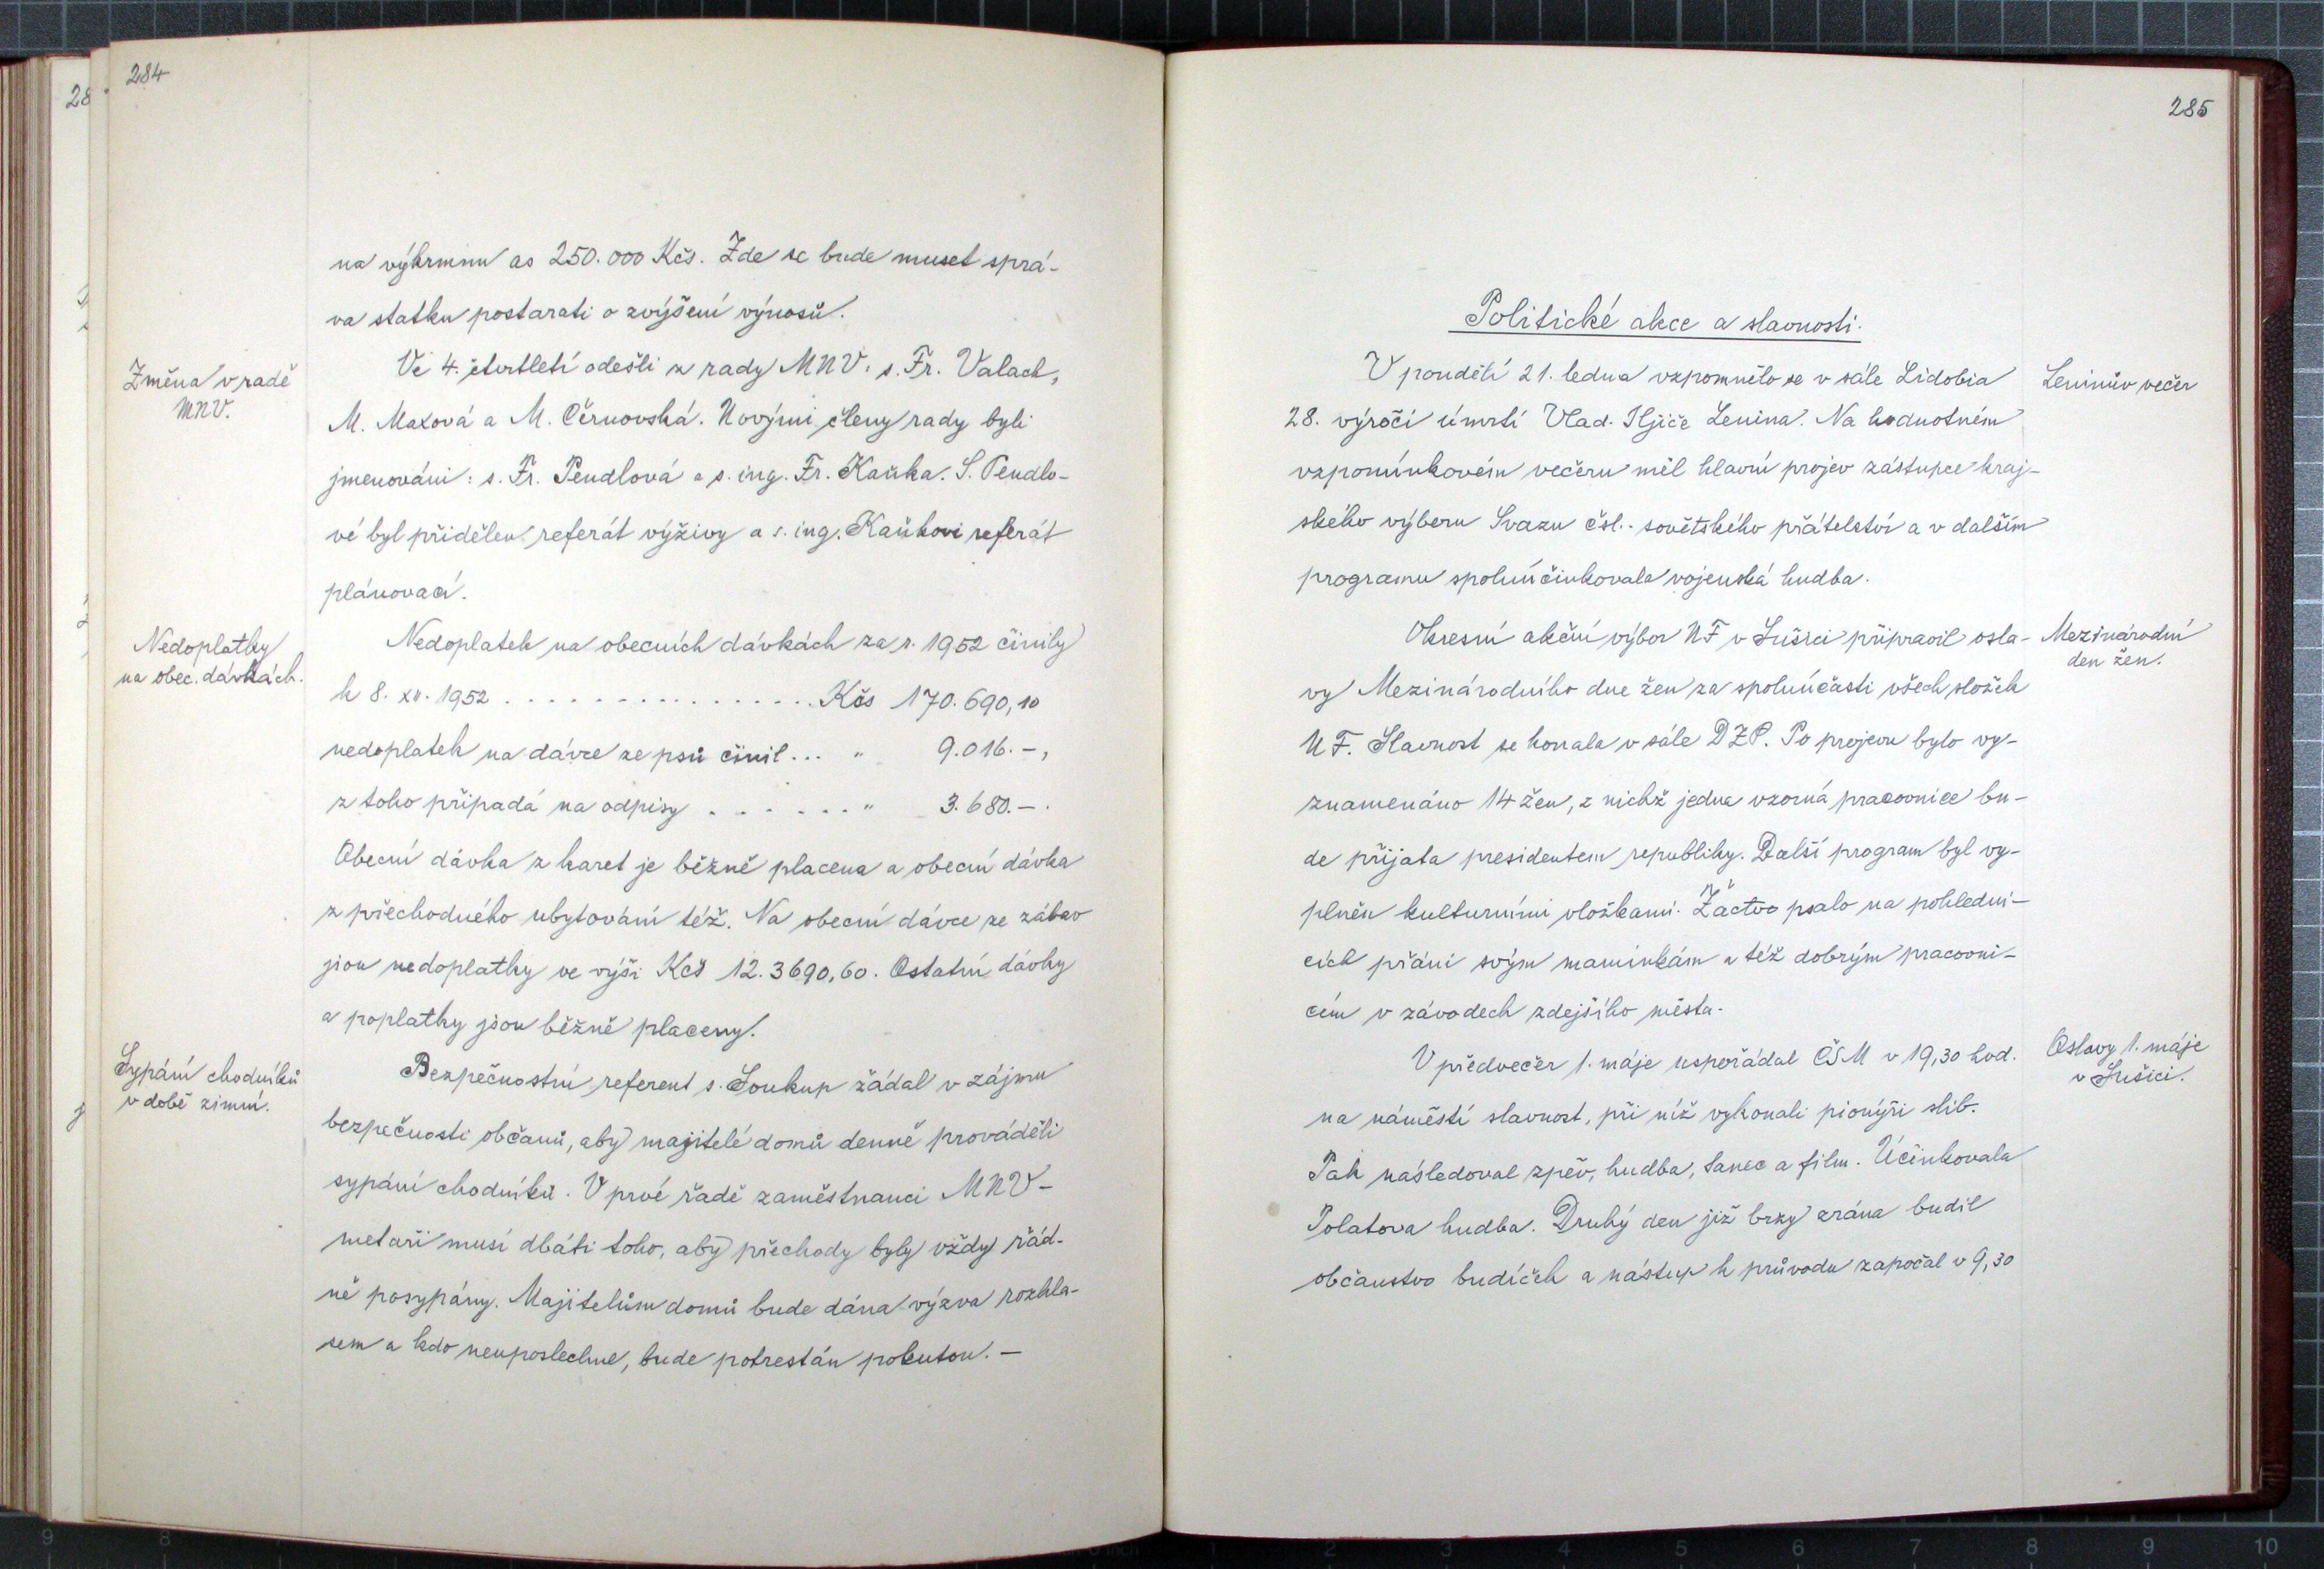 284
na výkrmnu as 250.000 Kčs. Zde se bude muset sprá-
va statku postarati o zvýšení výnosů.
Změna v radě
MNV.
Ve 4. čtvrtletí odešli z rady MNV: s. Fr. Valach,
M. Maxová a M. Černovská. Novými členy rady byli
jmenováni: s. Fr. Pendlová a s. ing. Fr. Kaňka. S. Pendlo-
vé byl přidělen referát výživy a s. ing. Kaňkovi referát
plánovací.
Nedoplatky
na obec. dávkách.
Nedoplatek na obecních dávkách za r. 1952 činily
k 8. XII. 1952 . . . . . . . . . . . . . . . . Kčs 170.690,10
nedoplatek na dávce ze psů činil... " 9.016.-,
z toho připadá na odpisy . . . . . . . " 3.680.-.
Obecní dávka z karet je běžně placena a obecní dávka
z přechodného ubytování též. Na obecní dávce ze zábav
jsou nedoplatky ve výši Kčs 12.3690,60. Ostatní dávky
a poplatky jsou běžně placeny.
Sypání chodníků
v době zimní.
Bezpečnostní referent s. Soukup žádal v zájmu
bezpečnosti občanů, aby majitelé domů denně prováděli
sypání chodníků. V prvé řadě zaměstnanci MNV-
metaři musí dbáti toho, aby přechody byly vždy řád-
ně posypány. Majitelům domů bude dána výzva rozhla-
sem a kdo neuposlechne, bude potrestán pokutou. -
285
Politické akce a slavnosti.
V pondělí 21. ledna vzpomnělo se v sále Lidobia
Leninův večer
28. výročí úmrtí Vlad. Iljiče Lenina. Na hodnotném
vzpomínkovém večeru měl hlavní projev zástupce kraj-
ského výboru Svazu čsl.-sovětského přátelství a v dalším
programu spoluúčinkovala vojenská hudba.
Okresní akční výbor NF v Sušici připravil osla-
Mezinárodní
den žen.
vy Mezinárodního dne žen za spoluúčasti všech složek
NF. Slavnost se konala v sále DZP. Po projevu bylo vy-
znamenáno 14 žen, z nichž jedna vzorná pracovnice bu-
de přijata presidentem republiky. Další program byl vy-
plněn kulturními vložkami. Žáctvo psalo na pohledni-
cích přání svým maminkám a též dobrým pracovni-
cím v závodech zdejšího města.
V předvečer 1. máje uspořádal ČSM v 19,30 hod.
Oslavy 1. máje
v Sušici.
na náměstí slavnost, při níž vykonali pionýři slib.
Pak následoval zpěv, hudba, tanec a film. Účinkovala
Polatova hudba. Druhý den již brzy zrána budil
občanstvo budíček a nástup k průvodu započal v 9,30